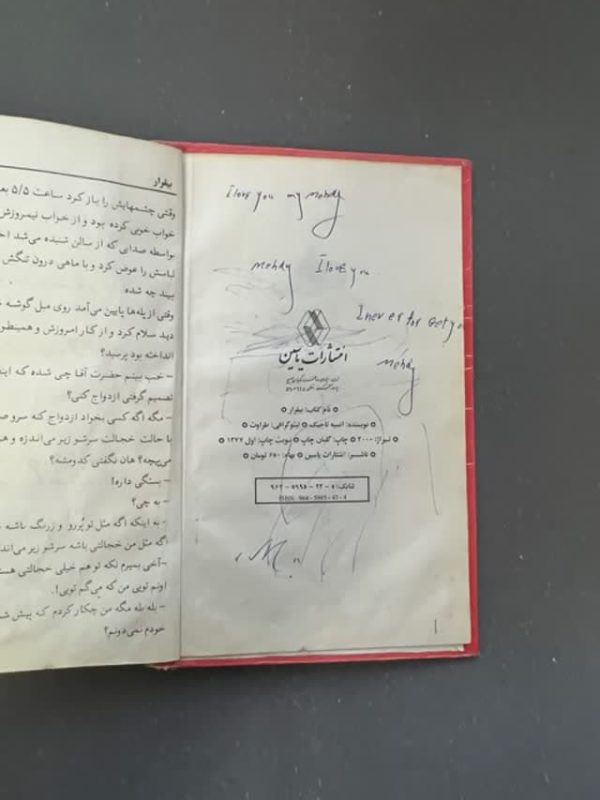 بیقرار
وقتی چشمهایش را باز کرد ساعت ۵/۵ بعد
خواب خوبی کرده بود و از خواب نیمروزش
بواسطه صدایی که از سالن شنیده می‌شد
لباسش را عوض کرد و با ماهی درون تنگش
ببیند چه شده
وقتی از پله‌ها پایین می‌آمد روی مبل گوشه
دید سلام کرد و از کار امروزش و همینطو
انداخته بود پرسید؟
– خب ببینم حضرت آقا چی شده که
تصمیم گرفتی ازدواج کنی؟
– مگه اگه کسی بخواد ازدواج کنه سرو
با حالت خجالت سرشو زیر می‌اندزه و
می‌پیچه؟ هان نگفتی کدومشه؟
– بستگی داره!
– به چی؟
– به اینکه اگه مثل تو پررو و زرنگ باشه
اگه مثل من خجالتی باشه سرشو زیر می‌اند
– آخی بمیرم نکه تو هم خیلی خجالتی
اونم تویی من که می‌گم تویی!.
– بله بله مگه من چکار کردم که پیش
خودم نمی‌دونم؟
I love you my Mehdy
Mehdy I love you
I never forget yo
Mehdy
انتشارات یاسین
● نام کتاب: بیقرار ●
● نویسنده: انسیه تاجیک ● لیتوگرافی: طراوت ●
● تیراژ: ۲۰۰۰ ● چاپ: گلبان چاپ ● نوبت چاپ: اول ۱۳۷۷ ●
● ناشر: انتشارات یاسین ● بهاء: ۶۵۰ تومان ●
M